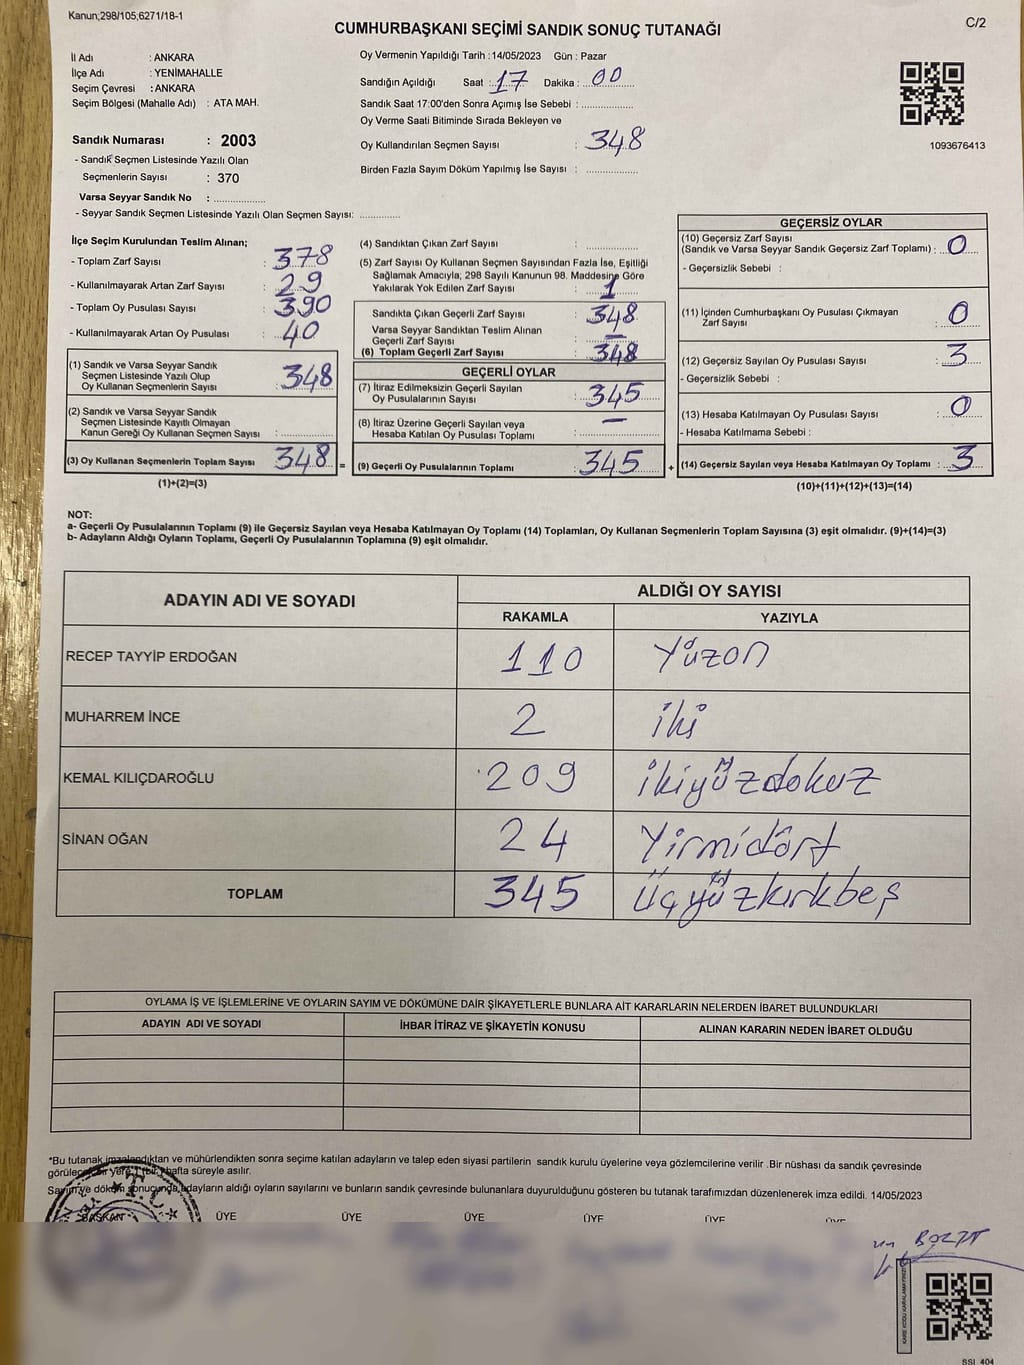 Kanun;298/105;6271/18-1
CUMHURBAŞKANI SEÇİMİ SANDIK SONUÇ TUTANAĞI
C/2
İl Adı : ANKARA
İlçe Adı : YENİMAHALLE
Seçim Çevresi : ANKARA
Seçim Bölgesi (Mahalle Adı) : ATA MAH.
Sandık Numarası : 2003
- Sandık Seçmen Listesinde Yazılı Olan
Seçmenlerin Sayısı : 370
Varsa Seyyar Sandık No : ..................
- Seyyar Sandık Seçmen Listesinde Yazılı Olan Seçmen Sayısı: ..............
Oy Vermenin Yapıldığı Tarih :14/05/2023 Gün : Pazar
Sandığın Açıldığı Saat : 17 Dakika : 00
Sandık Saat 17:00'den Sonra Açımış İse Sebebi : ..................
Oy Verme Saati Bitiminde Sırada Bekleyen ve
Oy Kullandırılan Seçmen Sayısı : 348
Birden Fazla Sayım Döküm Yapılmış İse Sayısı : ..................
1093676413
İlçe Seçim Kurulundan Teslim Alınan;
- Toplam Zarf Sayısı : 378
- Kullanılmayarak Artan Zarf Sayısı : 29
- Toplam Oy Pusulası Sayısı : 390
- Kullanılmayarak Artan Oy Pusulası : 40
(1) Sandık ve Varsa Seyyar Sandık
Seçmen Listesinde Yazılı Olup
Oy Kullanan Seçmenlerin Sayısı : 348
(2) Sandık ve Varsa Seyyar Sandık
Seçmen Listesinde Kayıtlı Olmayan
Kanun Gereği Oy Kullanan Seçmen Sayısı : ..............
(3) Oy Kullanan Seçmenlerin Toplam Sayısı : 348 =
(1)+(2)=(3)
(4) Sandıktan Çıkan Zarf Sayısı : ..............
(5) Zarf Sayısı Oy Kullanan Seçmen Sayısından Fazla İse, Eşitliği
Sağlamak Amacıyla; 298 Sayılı Kanunun 98. Maddesine Göre
Yakılarak Yok Edilen Zarf Sayısı : 1
Sandıkta Çıkan Geçerli Zarf Sayısı : 348
Varsa Seyyar Sandıktan Teslim Alınan
Geçerli Zarf Sayısı : —
(6) Toplam Geçerli Zarf Sayısı : 348
GEÇERLİ OYLAR
(7) İtiraz Edilmeksizin Geçerli Sayılan
Oy Pusulalarının Sayısı : 345
(8) İtiraz Üzerine Geçerli Sayılan veya
Hesaba Katılan Oy Pusulası Toplamı : —
(9) Geçerli Oy Pusulalarının Toplamı : 345 +
GEÇERSİZ OYLAR
(10) Geçersiz Zarf Sayısı
(Sandık ve Varsa Seyyar Sandık Geçersiz Zarf Toplamı) : 0
- Geçersizlik Sebebi :
(11) İçinden Cumhurbaşkanı Oy Pusulası Çıkmayan
Zarf Sayısı : 0
(12) Geçersiz Sayılan Oy Pusulası Sayısı : 3
- Geçersizlik Sebebi :
(13) Hesaba Katılmayan Oy Pusulası Sayısı : 0
- Hesaba Katılmama Sebebi :
(14) Geçersiz Sayılan veya Hesaba Katılmayan Oy Toplamı : 3
(10)+(11)+(12)+(13)=(14)
NOT:
a- Geçerli Oy Pusulalarının Toplamı (9) ile Geçersiz Sayılan veya Hesaba Katılmayan Oy Toplamı (14) Toplamları, Oy Kullanan Seçmenlerin Toplam Sayısına (3) eşit olmalıdır. (9)+(14)=(3)
b- Adayların Aldığı Oyların Toplamı, Geçerli Oy Pusulalarının Toplamına (9) eşit olmalıdır.
ADAYIN ADI VE SOYADI ALDIĞI OY SAYISI
RAKAMLA YAZIYLA
RECEP TAYYİP ERDOĞAN 110 Yüzon
MUHARREM İNCE 2 iki
KEMAL KILIÇDAROĞLU 209 ikiyüzdokuz
SİNAN OĞAN 24 Yirmidört
TOPLAM 345 Üçyüzkırkbeş
OYLAMA İŞ VE İŞLEMLERİNE VE OYLARIN SAYIM VE DÖKÜMÜNE DAİR ŞİKAYETLERLE BUNLARA AİT KARARLARIN NELERDEN İBARET BULUNDUKLARI
ADAYIN ADI VE SOYADI İHBAR İTİRAZ VE ŞİKAYETİN KONUSU ALINAN KARARIN NEDEN İBARET OLDUĞU
*Bu tutanak imzalandıktan ve mühürlendikten sonra seçime katılan adayların ve talep eden siyasi partilerin sandık kurulu üyelerine veya gözlemcilerine verilir .Bir nüshası da sandık çevresinde
görülecek bir yere 1 (bir) hafta süreyle asılır.
Sayım ve döküm sonucunda adayların aldığı oyların sayılarını ve bunların sandık çevresinde bulunanlara duyurulduğunu gösteren bu tutanak tarafımızdan düzenlenerek imza edildi. 14/05/2023
BAŞKAN ÜYE ÜYE ÜYE ÜYE ÜYE ÜYE
T.C.
KARE KODU KARALAMAYINIZ
SSI 404